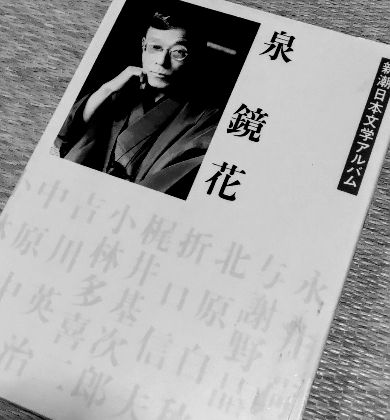 新潮日本文学アルバム
泉鏡花
永井
与謝野晶
北原白秋
折口信夫
梶井基次郎
小林多喜二
吉川英治
中原中